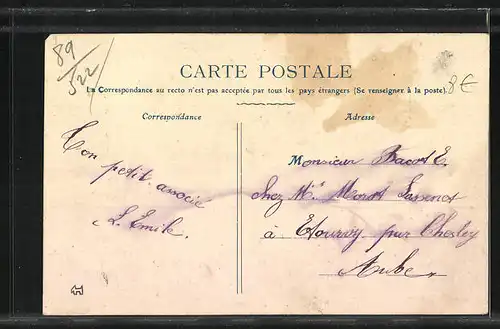 89/522
CARTE POSTALE
La Correspondance au recto n'est pas acceptée par tous les pays étrangers (Se renseigner à la poste).
8€
Correspondance
Adresse
Ton petit associé
L. Emile.
Monsieur Bacot E.
Chez Mr Morot
à Etourvy par Chesley
Aube